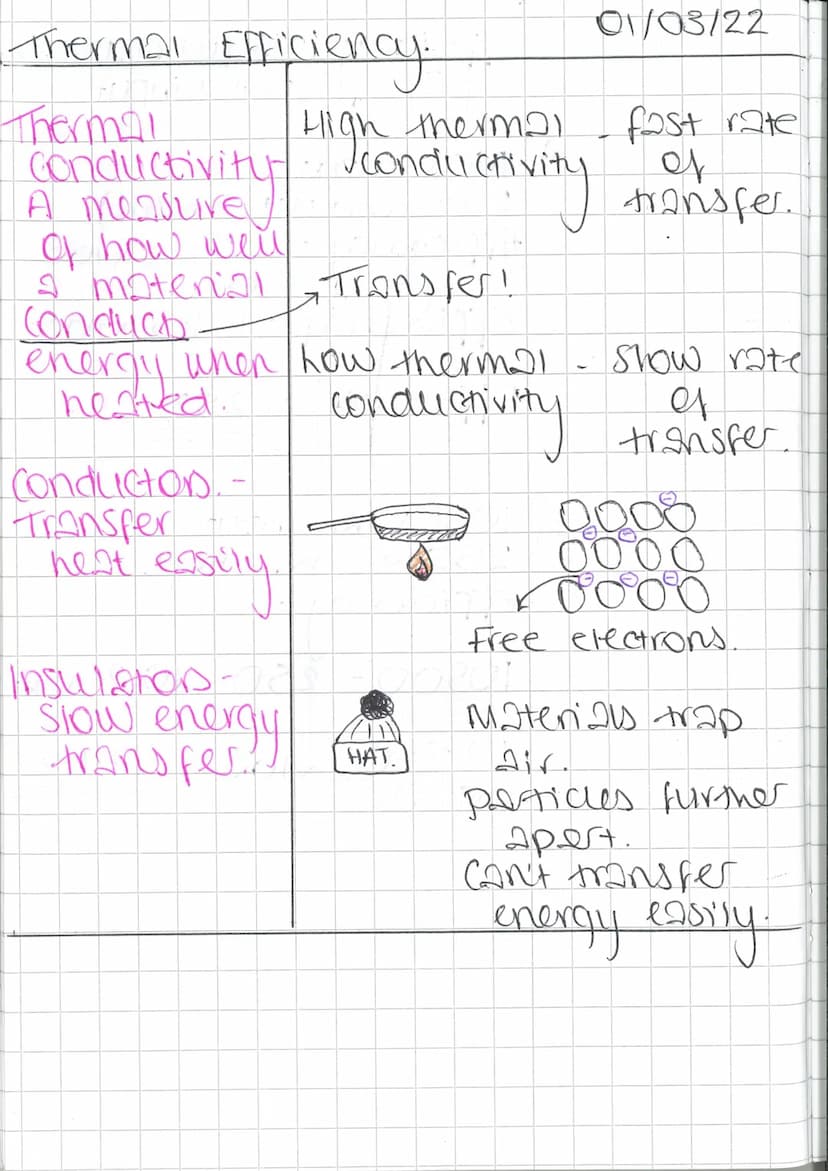 Thermal Efficiency. 01/03/22
Thermal
conductivity-
A measure
of how well
a material
conducts
energy when
heated.
Conductors.-
Transfer
heat easily.
Insulators-
Slow energy
transfer.
High thermal - fast rate
conductivity of
transfer.
Transfer!
how thermal - slow rate
conductivity of
transfer.
Free electrons.
HAT.
Materials trap
air.
particles further
apart.
Can't transfer
energy easily.